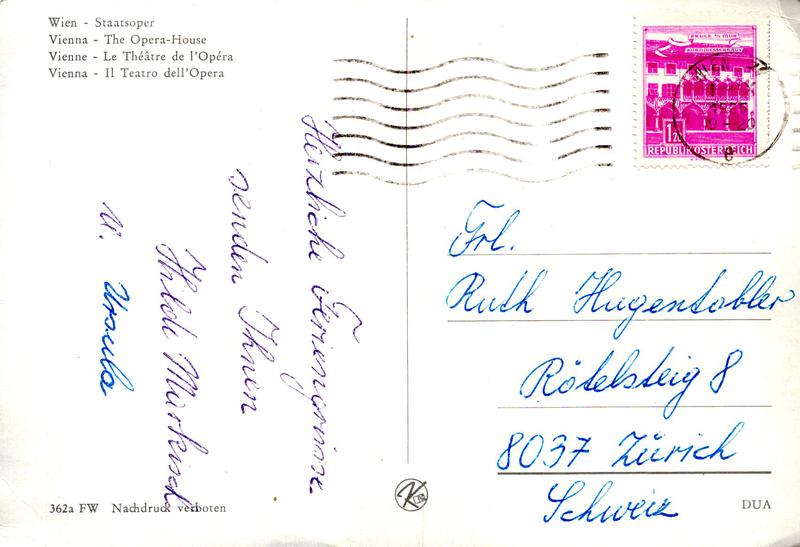 Wien - Staatsoper
Vienna - The Opera-House
Vienne - Le Théâtre de l'Opéra
Vienna - Il Teatro dell'Opera
Herzliche Feriengrüsse
senden Ihnen
Hilde Markisch
u. Ursula
BRUCK A/D MUR
KORNMESSERHAUS
1.20
REPUBLIK ÖSTERREICH
WIEN
Frl.
Ruth Hugentobler
Rötelsteig 8
8037 Zürich
Schweiz
362a FW Nachdruck verboten
K
DUA